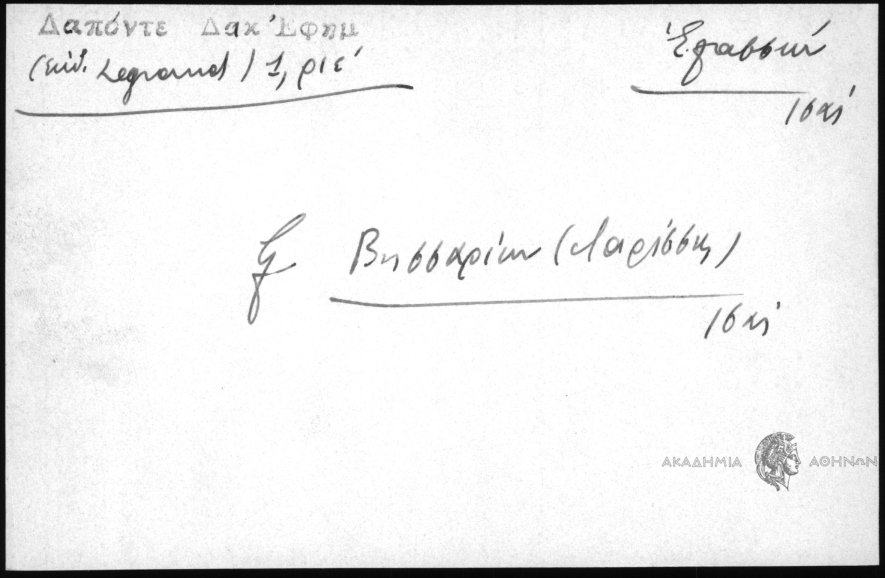 Δαπόντε Δακ Ἐφημ
(ἐκδ. Legrand) 1, ριέ
Ἐλασσών
16 αἰ
Βησσαρίων (Λαρίσσης)
16 αἰ
ΑΚΑΔΗΜΙΑ ΑΘΗΝΩΝ